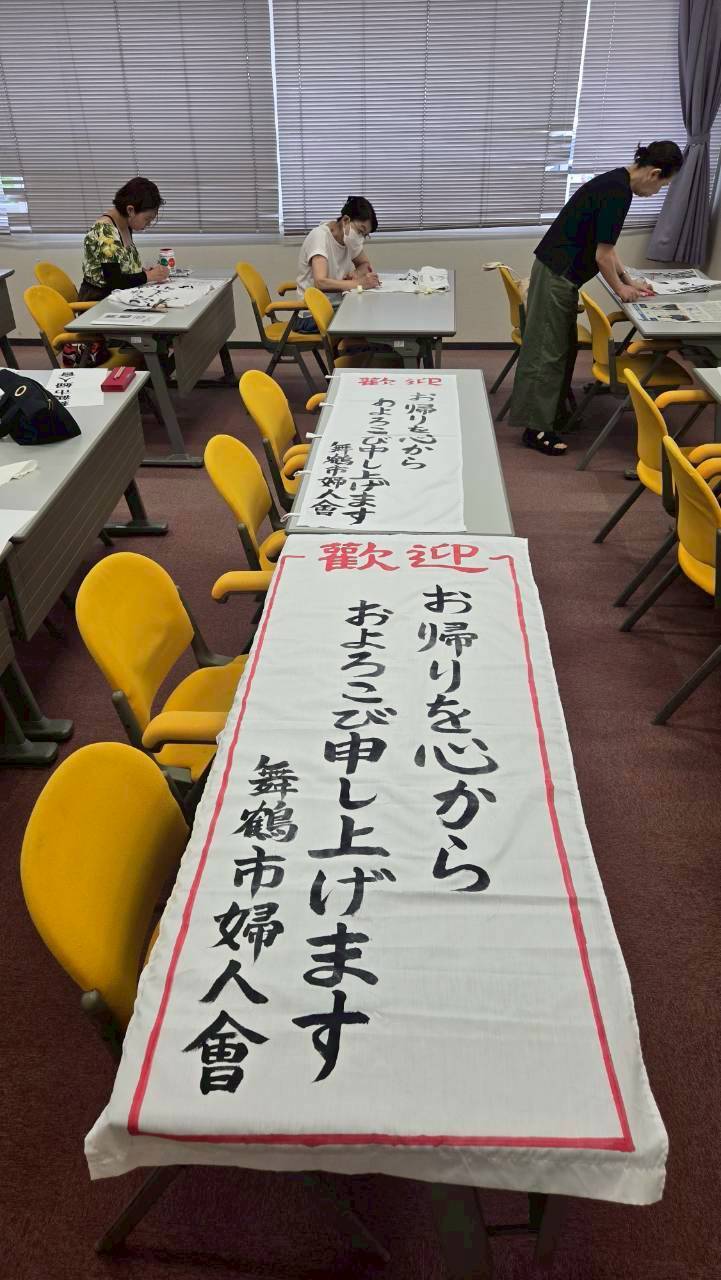 歡迎
お帰りを心から
およろこび申し上げます
舞鶴市婦人會
歡迎
お帰りを心から
およろこび申し上げます
舞鶴市婦人會